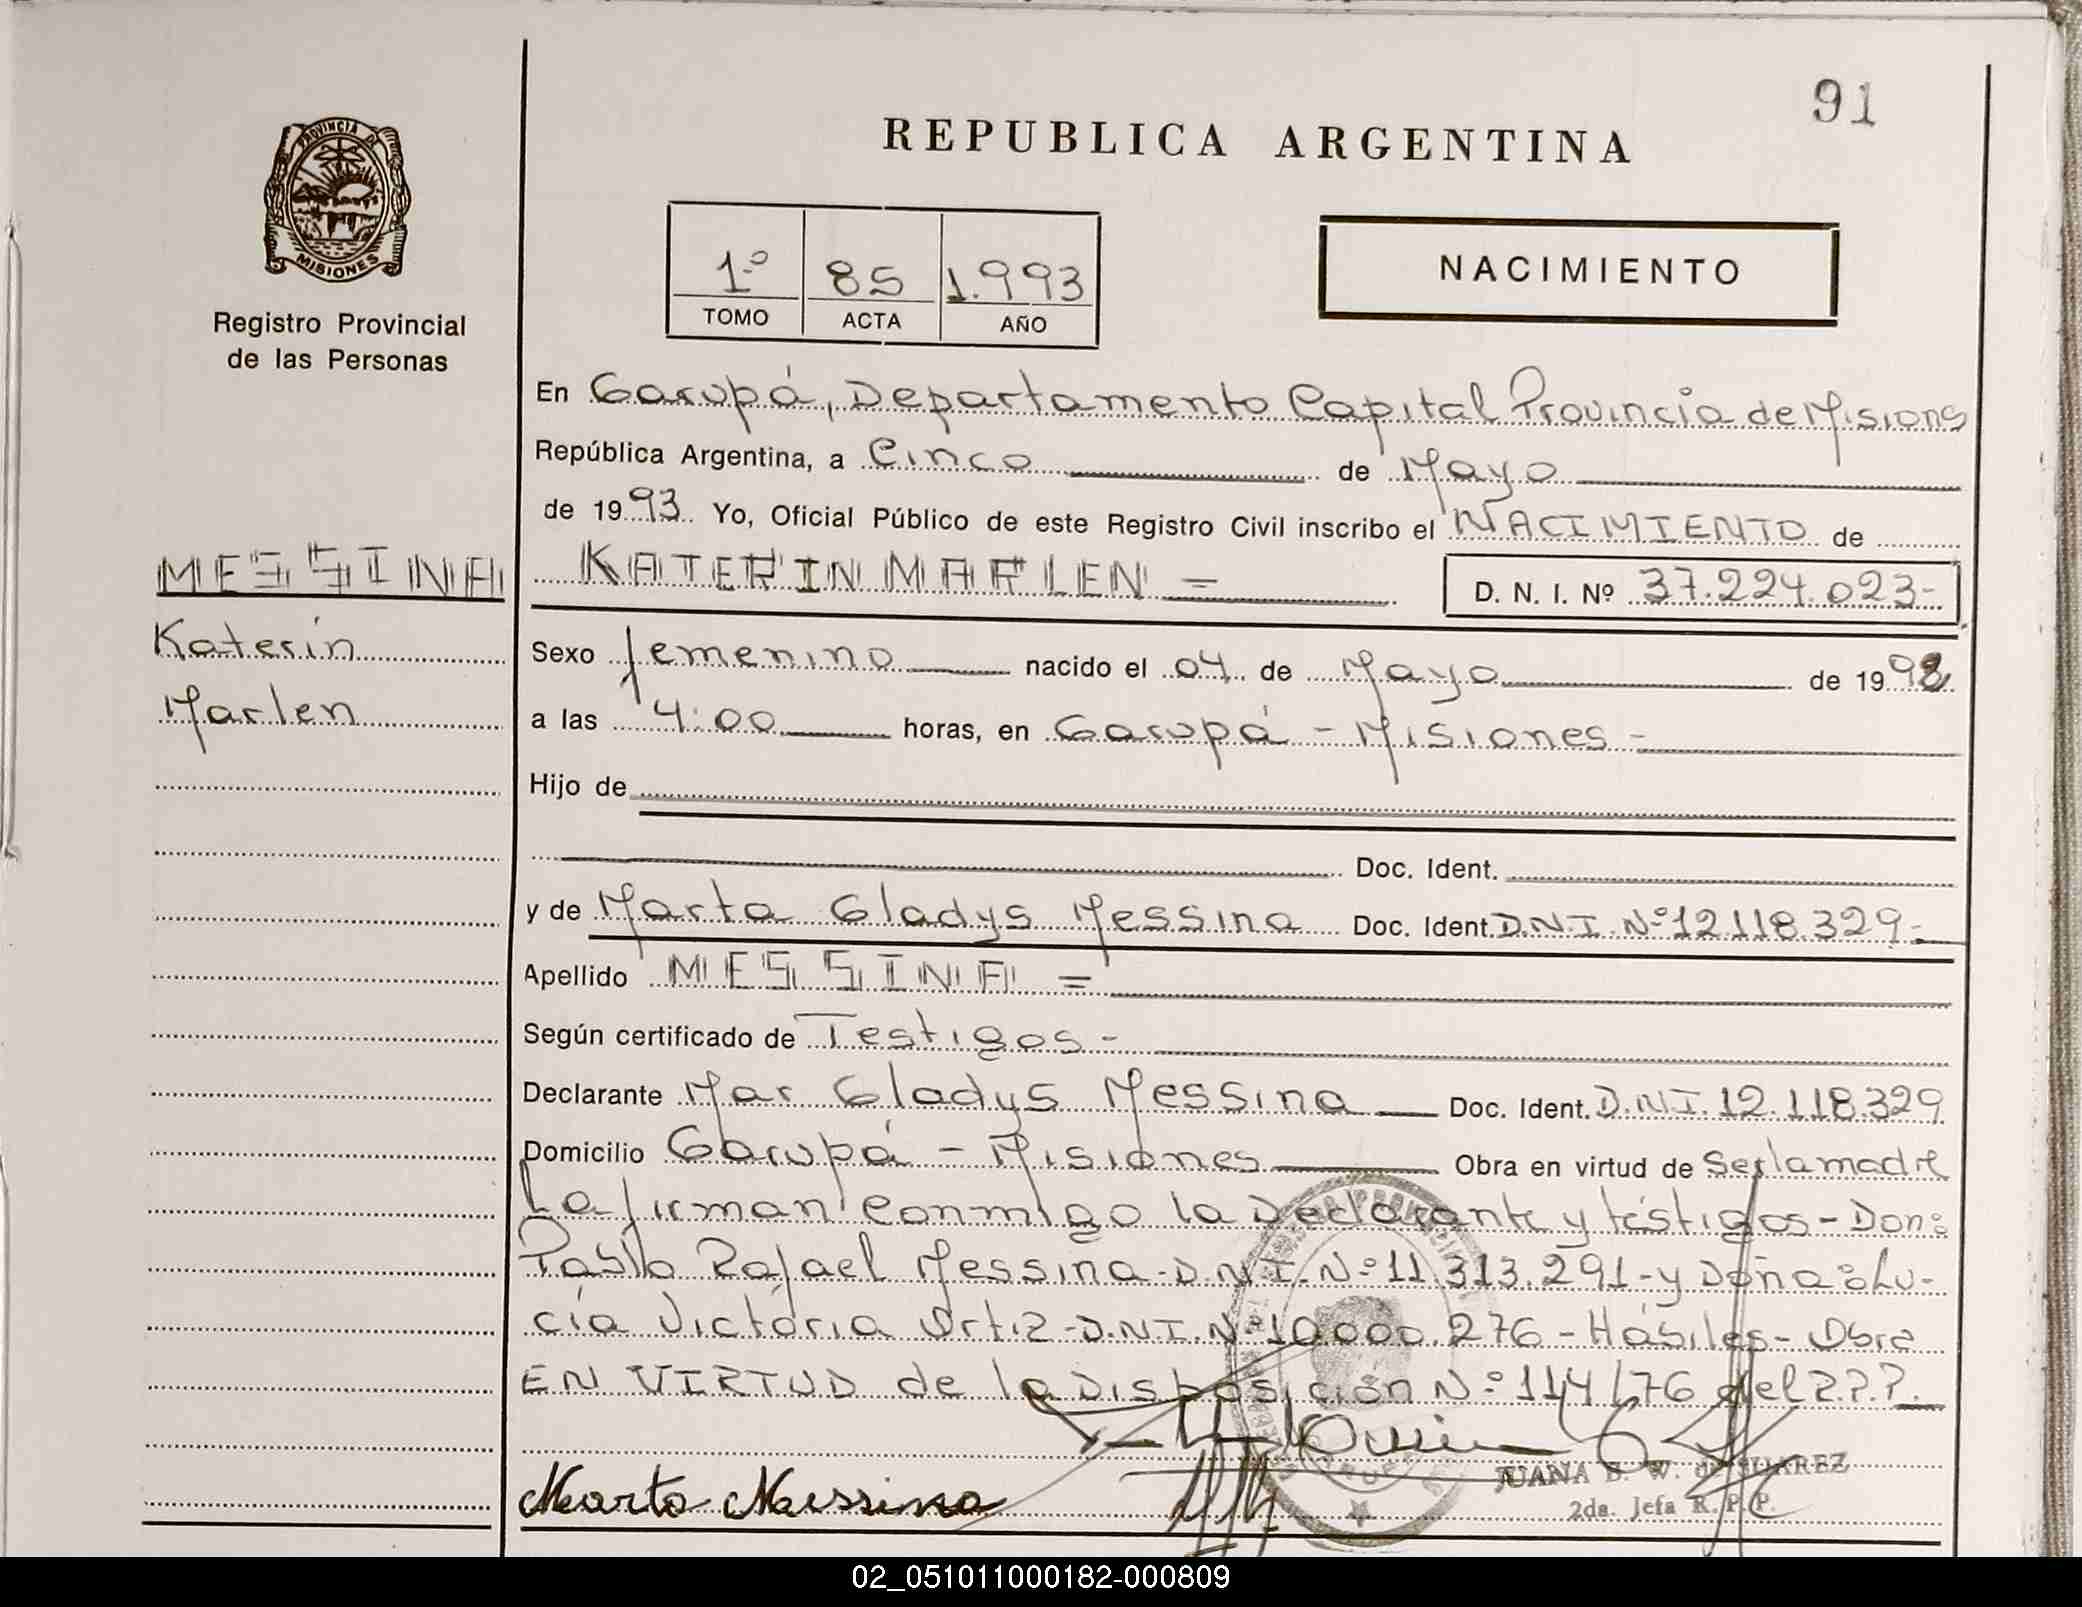 91
REPUBLICA ARGENTINA
PROVINCIA DE
MISIONES
Registro Provincial
de las Personas
1º 85 1.993
TOMO ACTA AÑO
NACIMIENTO
En Garupá, Departamento Capital Provincia de Misiones
República Argentina, a Cinco de Mayo
de 1993 Yo, Oficial Público de este Registro Civil inscribo el NACIMIENTO de
MESSINA
Katerin
Marlen
KATERIN MARLEN = D. N. I. Nº 37.224.023-
Sexo femenino nacido el 04 de Mayo de 19
a las 4:00 horas, en Garupá - Misiones -
Hijo de
Doc. Ident.
y de Marta Gladys Messina Doc. Ident. D.N.I. Nº 12.118.329-
Apellido MESSINA =
Según certificado de Testigos-
Declarante Mar Gladys Messina Doc. Ident. D.N.I. 12.118.329
Domicilio Garupá - Misiones Obra en virtud de Ser la madre
La firman conmigo la Declarante y testigos - Don:
Pablo Rafael Messina - D.N.I. Nº 11.313.291 - y Doña: Lu-
cía Victoria Ortiz - D.N.I. Nº 10.000.276 - Hábiles - Obra
EN VIRTUD de la Disposición Nº 114/76 del R.P.P.
Marta Messina
JUANA B. W. de SUAREZ
2da. Jefa R.P.P.
02_051011000182-000809